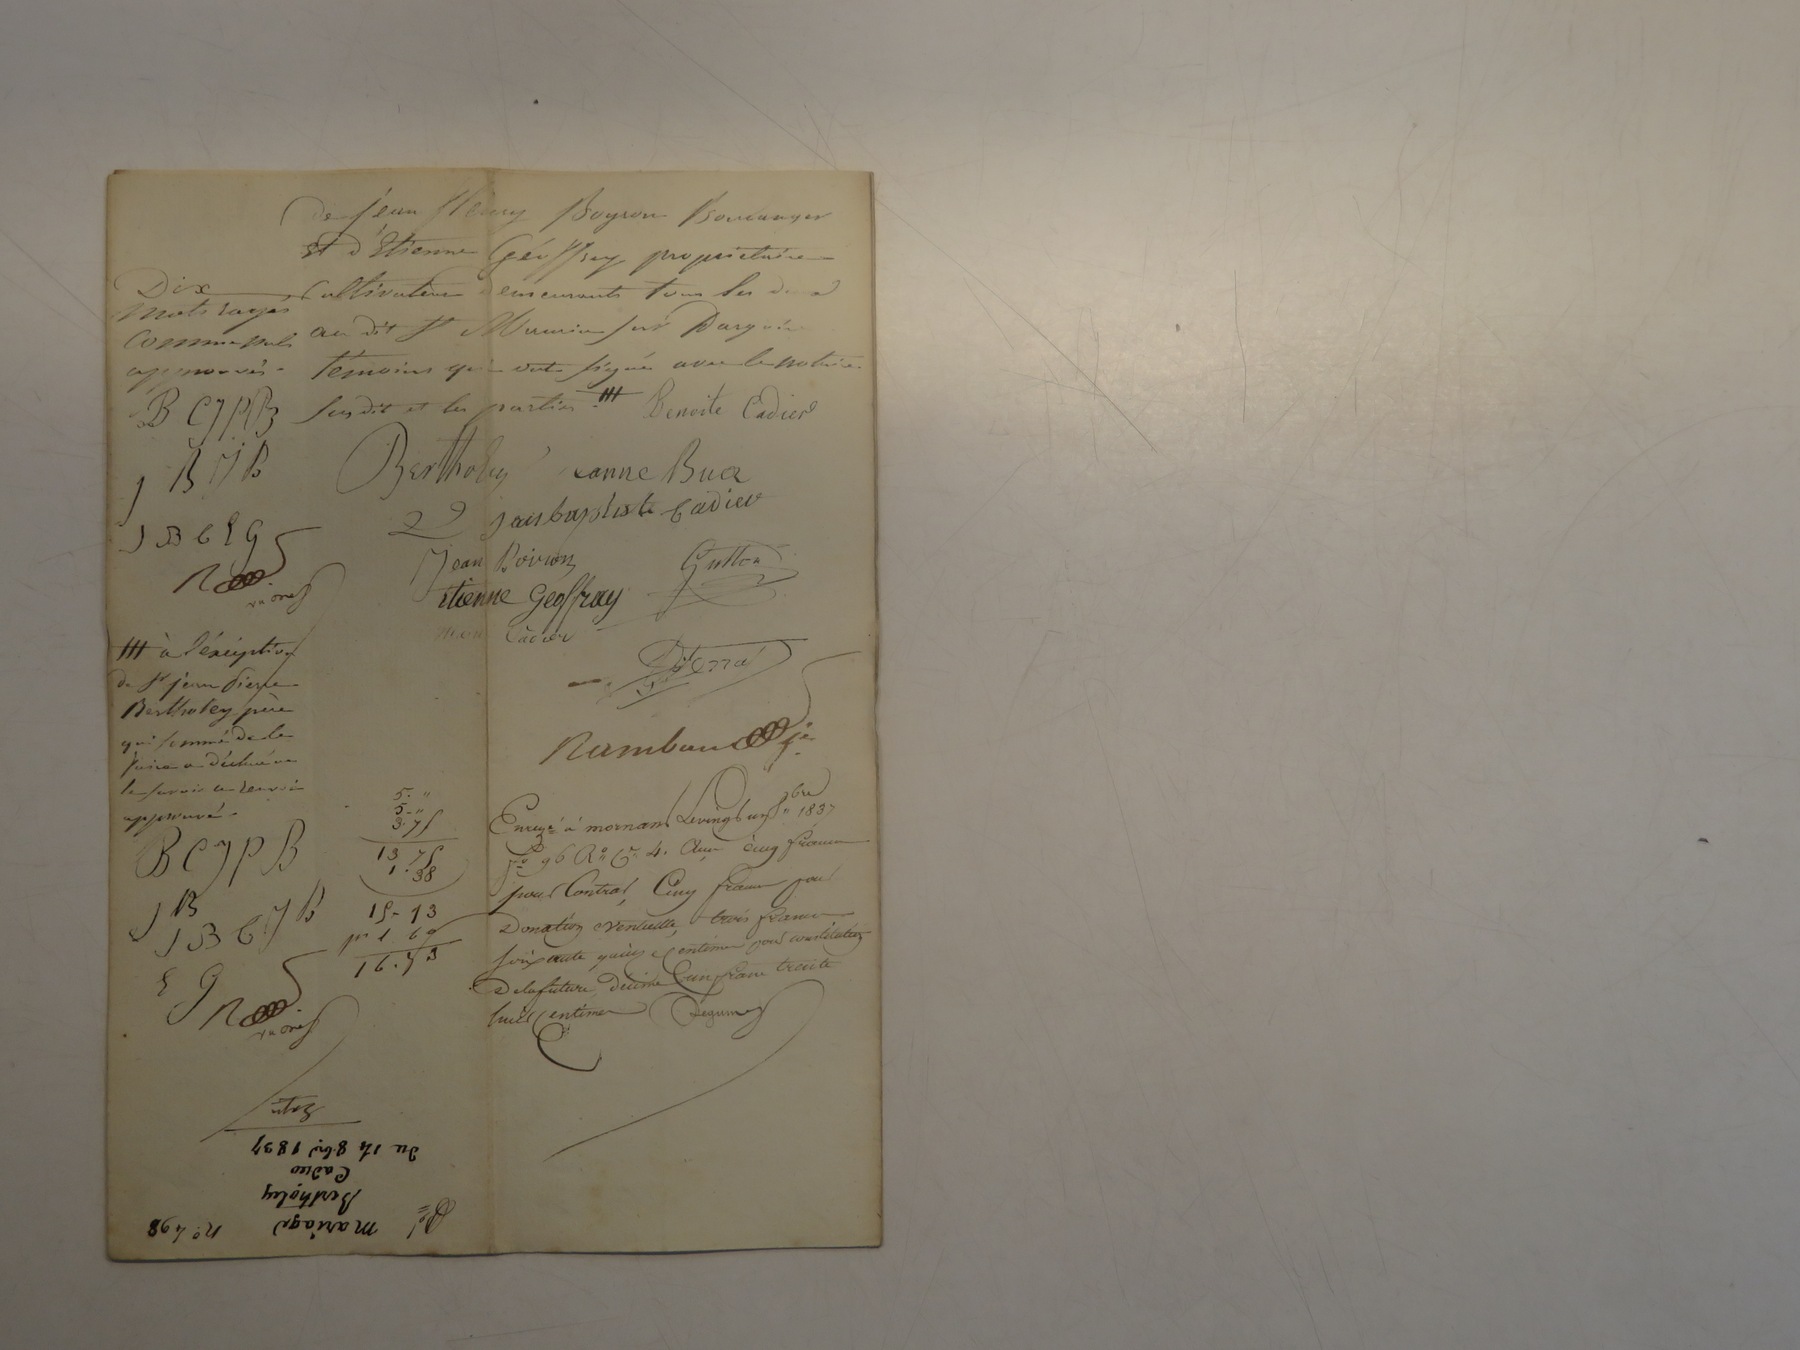 de Jean Fleury Boyron Boulanger
et d'Etienne Geoffray propriétaire
Cultivateur demeurants tous les deux
au dit St Maurice sur Dargoire
témoins qui ont signé avec le notaire
susdit et les parties . ttt
Dix
mots rayés
comme nuls
approuvés .
B C J P B
J B J B
J B C E G
R
Benoite Cadier
Bertholey Jeanne Buer
jean baptiste Cadier
Jean Boiron Gutton
etienne Geoffray
Cadier
ttt à l'exception
de Sr jean Pierre
Bertholey père
qui sommé de le
faire a déclaré ne
le savoir ce renvoi
approuvé .
B C J P B
J B
J B C J B
E G
R
Rambau je
5. "
5. "
3. 75
13 75
1. 38
15 - 13
1 6.53
Enregé à mornant le vingt un 8bre 1837
fo 96 Ro Ce 4. cinq francs
pour Contrat, Cinq francs pour
Donation éventuelle, trois francs
soixante quinze centimes pour constitution
de la future, décime un franc trente
huit centimes
No 498
Mariage
Bertholey
Cadier
Du 14 8bre 1837